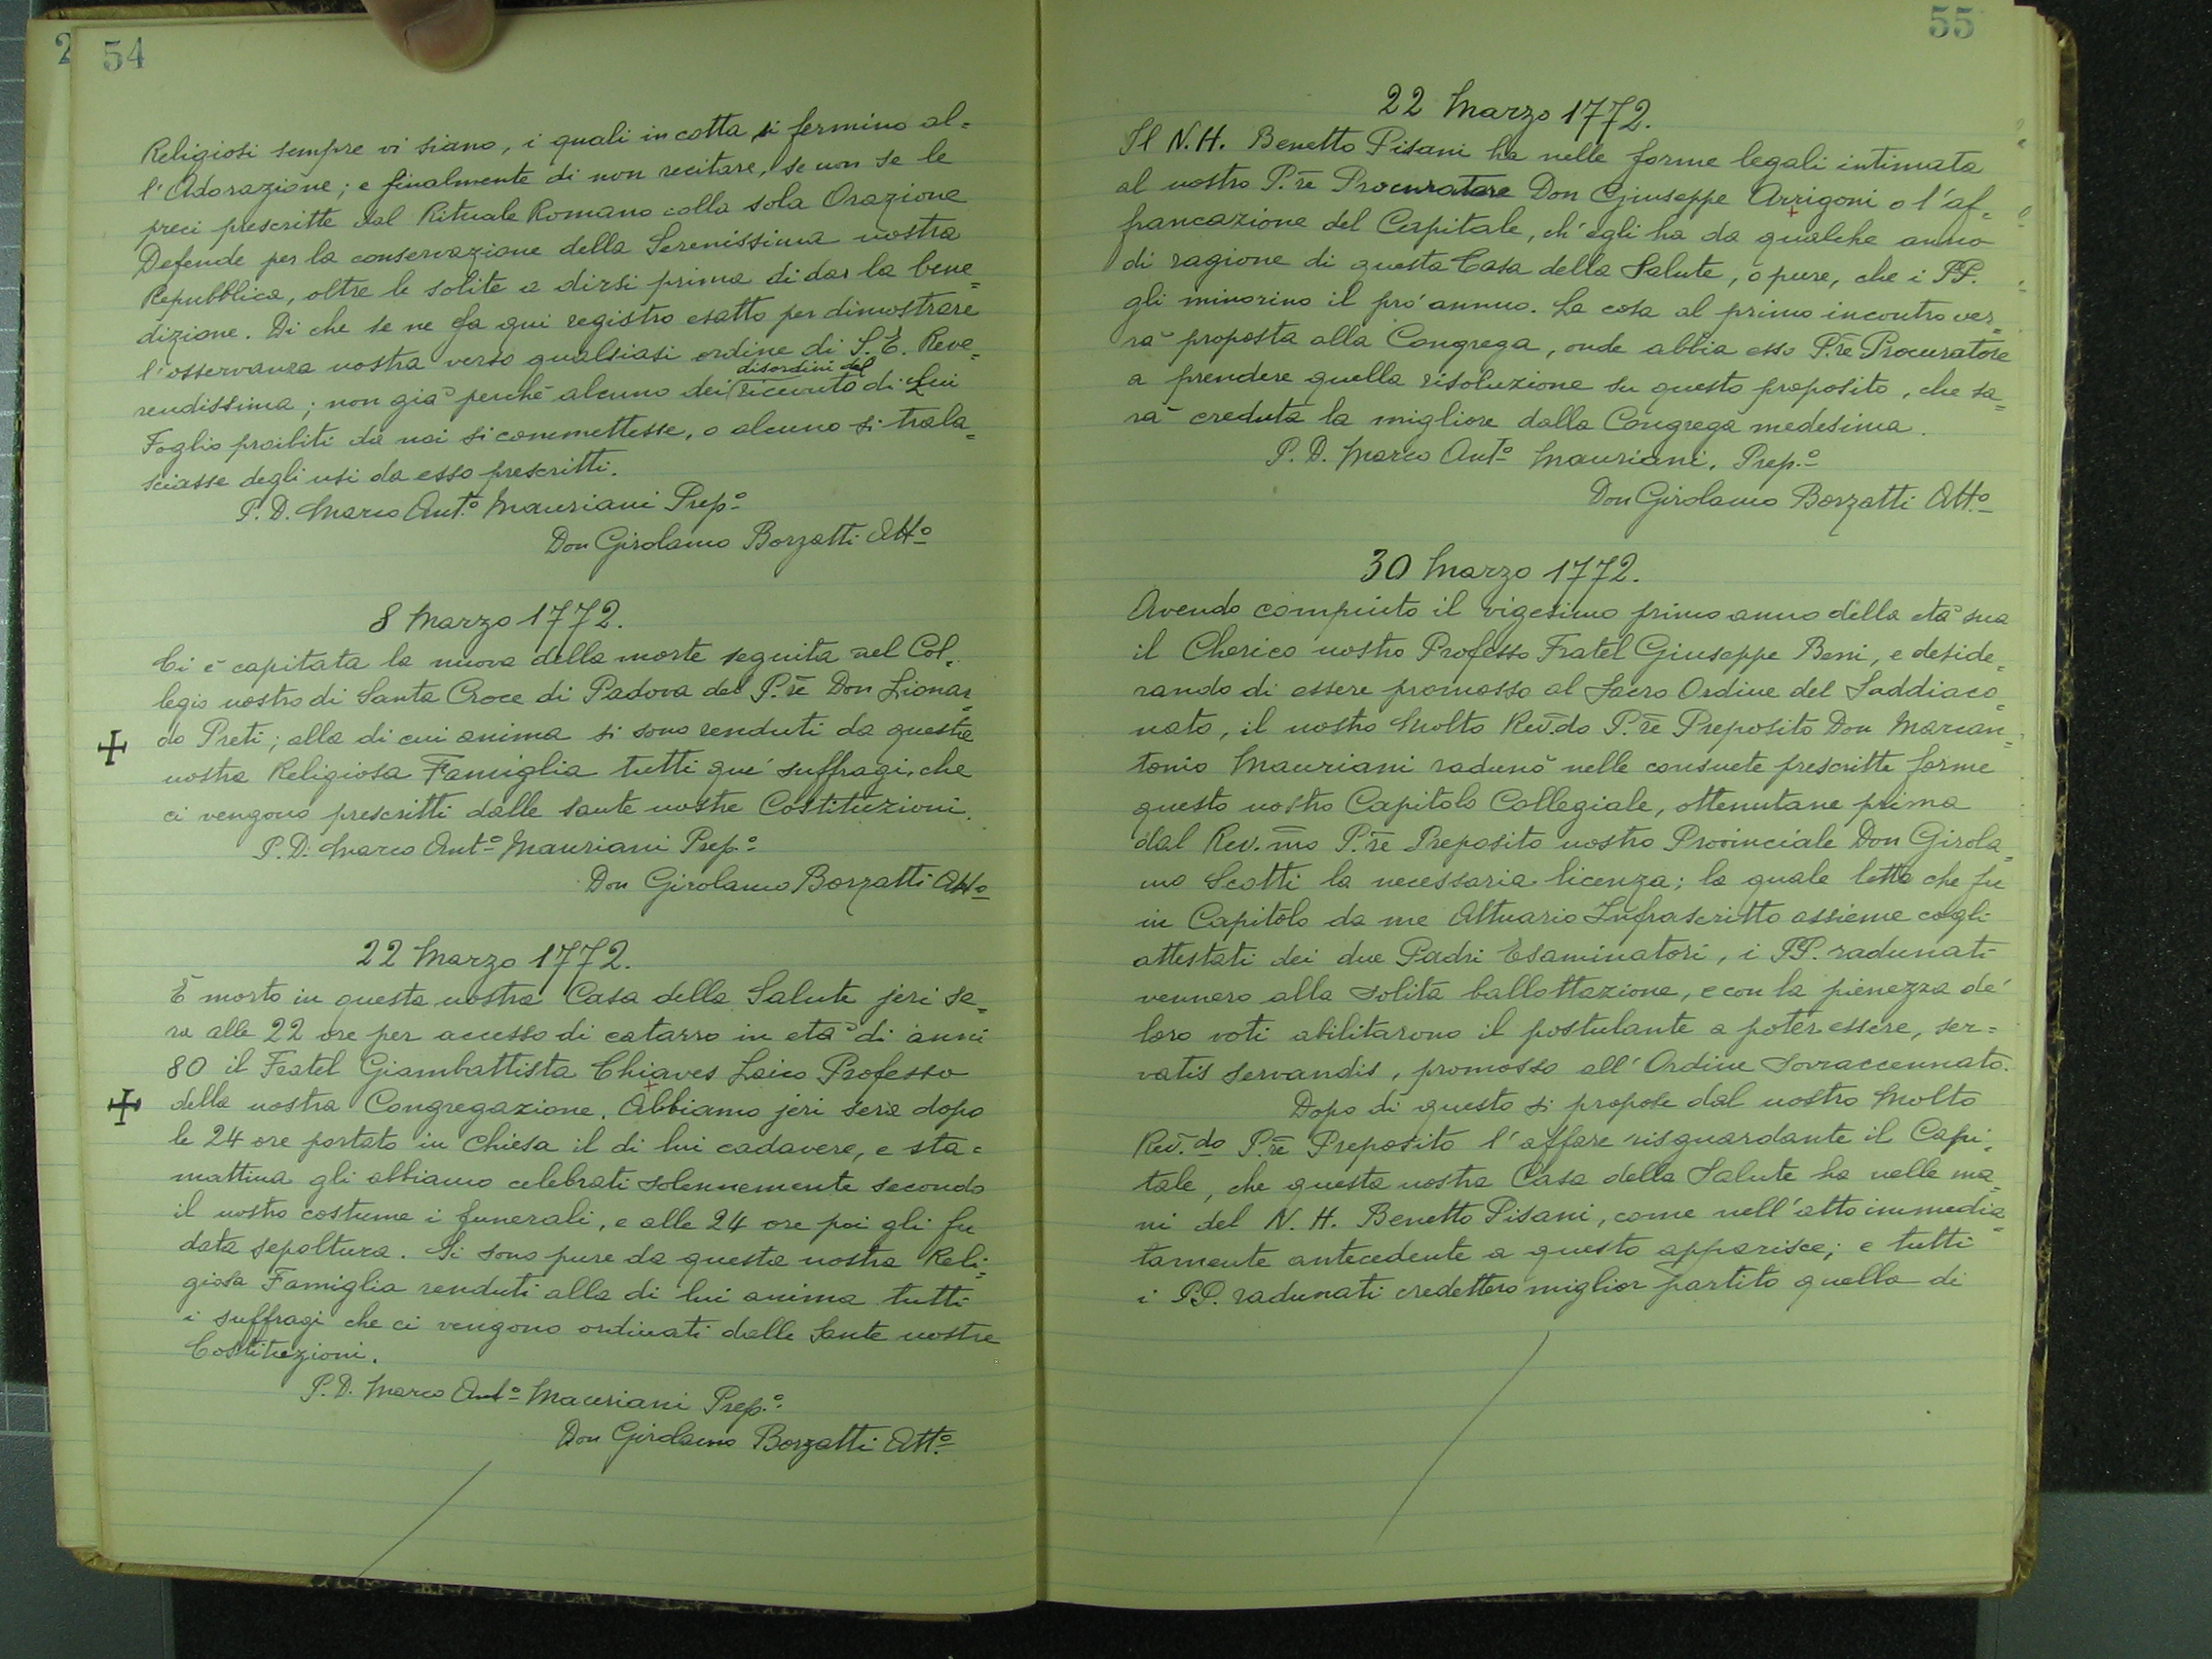 54
Religiosi sempre vi siano, i quali in cotta si fermino al=
l'Adorazione; e finalmente di non recitare, se non se le
preci prescritte dal Rituale Romano colla sola Orazione
Defende per la conservazione della Serenissima nostra
Repubblica, oltre le solite a dirsi prima di dar la bene=
dizione. Di che se ne fa qui registro esatto per dimostrare
l'osservanza nostra verso qualsiasi ordine di S. E. Reve=
disordini del
rendissima; non già perchè alcuno dei ricevuto di Lui
Foglio proibiti da noi si commettesse, o alcuno si trala=
sciasse degli usi da esso prescritti.
P. D. Marco Ant.º Mauriani Prep.º
Don Girolamo Borzatti Att.º
8 Marzo 1772.
Ci è capitata la nuova della morte seguita nel Col=
legio nostro di Santa Croce di Padova del P.re Don Lionar=
do Preti; alla di cui anima si sono renduti da questa
nostra Religiosa Famiglia tutti que' suffragi, che
ci vengono prescritti dalle sante nostre Costituzioni.
P. D. Marco Ant.º Mauriani Prep.º
Don Girolamo Borzatti Att.º
22 Marzo 1772.
È morto in questa nostra Casa della Salute jeri se=
ra alle 22 ore per accesso di catarro in età di anni
80 il Fratel Giambattista Chiaves Laico Professo
della nostra Congregazione. Abbiamo jeri sera dopo
le 24 ore portato in Chiesa il di lui cadavere, e sta=
mattina gli abbiamo celebrati solennemente secondo
il nostro costume i funerali, e alle 24 ore poi gli fu
data sepoltura. Si sono pure da questa nostra Reli=
giosa Famiglia renduti alla di lui anima tutti
i suffragi che ci vengono ordinati dalle Sante nostre
Costituzioni.
P. D. Marco Ant.º Mauriani Prep.º
Don Girolamo Borzatti Att.º
55
22 Marzo 1772.
Il N. H. Benetto Pisani ha nelle forme legali intimata
al nostro P.re Procuratore Don Giuseppe Arrigoni o l'af=
francazione del Capitale, ch'egli ha da qualche anno
di ragione di questa Casa della Salute, o pure, che i PP.
gli minorino il prò annuo. La cosa al primo incontro ver=
rà proposta alla Congrega, onde abbia esso P.re Procuratore
a prendere quella risoluzione su questo proposito, che sa=
rà creduta la migliore dalla Congrega medesima.
P. D. Marco Ant.º Mauriani, Prep.º
Don Girolamo Borzatti Att.º
30 Marzo 1772.
Avendo compiuto il vigesimo primo anno della età sua
il Cherico nostro Professo Fratel Giuseppe Beni, e deside=
rando di essere promosso al Sacro Ordine del Suddiaco=
nato, il nostro Molto Rev.do P.re Preposito Don Marcan=
tonio Mauriani radunò nelle consuete prescritte forme
questo nostro Capitolo Collegiale, ottenutane prima
dal Rev.mo P.re Preposito nostro Provinciale Don Girola=
mo Scotti la necessaria licenza; la quale letta che fu
in Capitolo da me Attuario Infrascritto assieme cogli
attestati dei due Padri Esaminatori, i PP. radunati
vennero alla solita ballottazione, e con la pienezza de'
loro voti abilitarono il postulante a poter essere, ser=
vatis servandis, promosso all'Ordine sovraccennato.
Dopo di questo si propose dal nostro Molto
Rev.do P.re Preposito l'affare risguardante il Capi=
tale, che questa nostra Casa della Salute ha nelle ma=
ni del N. H. Benetto Pisani, come nell'atto immedia=
tamente antecedente a questo apparisce; e tutti
i PP. radunati credettero miglior partito quello di